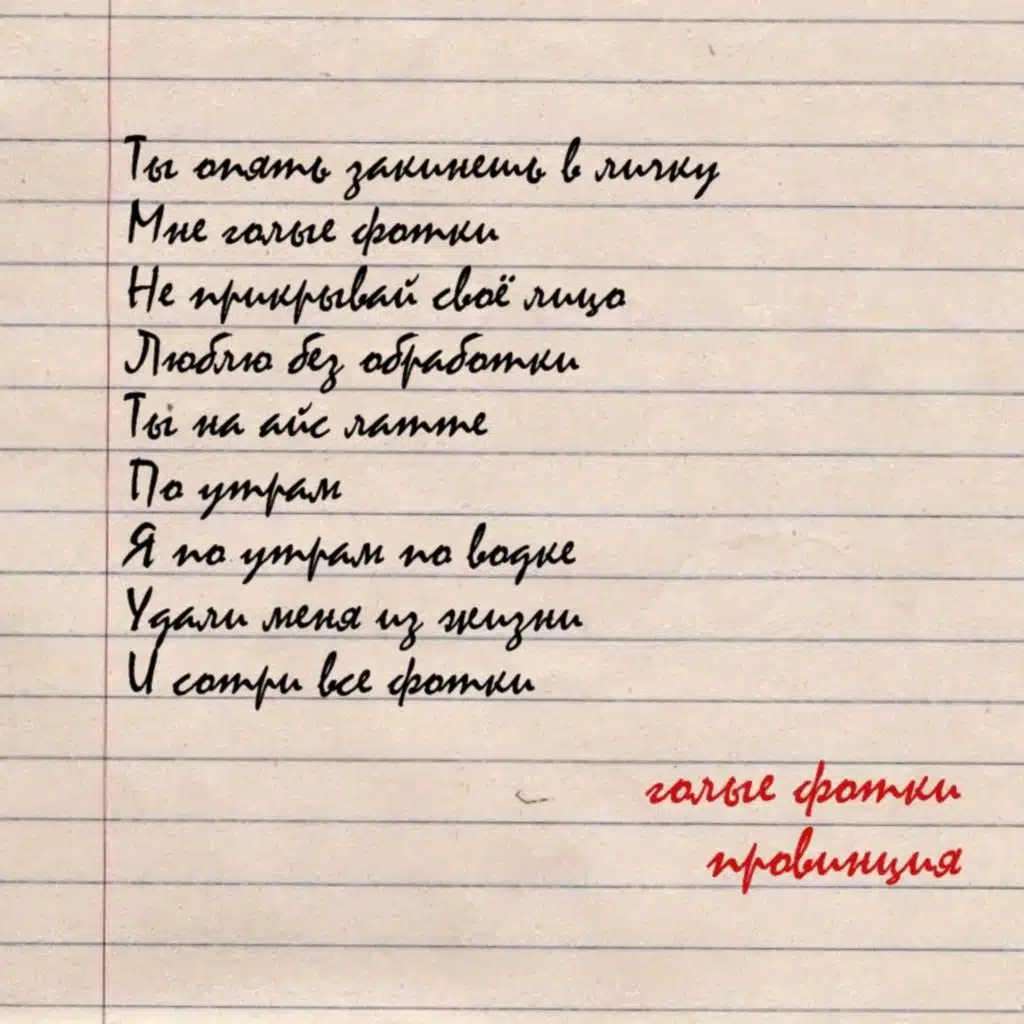 Ты опять закинешь в личку
Мне голые фотки
Не прикрывай своё лицо
Люблю без обработки
Ты на айс латте
По утрам
Я по утрам по водке
Удали меня из жизни
И сотри все фотки
голые фотки
провинция